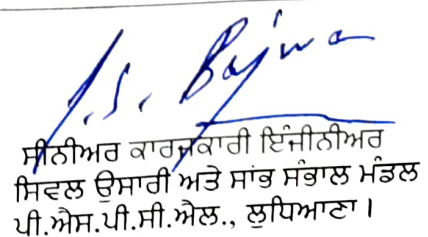 J.S. Bajwa
ਸੀਨੀਅਰ ਕਾਰਜਕਾਰੀ ਇੰਜੀਨੀਅਰ
ਸਿਵਲ ਉਸਾਰੀ ਅਤੇ ਸਾਂਭ ਸੰਭਾਲ ਮੰਡਲ
ਪੀ.ਐਸ.ਪੀ.ਸੀ.ਐਲ., ਲੁਧਿਆਣਾ।